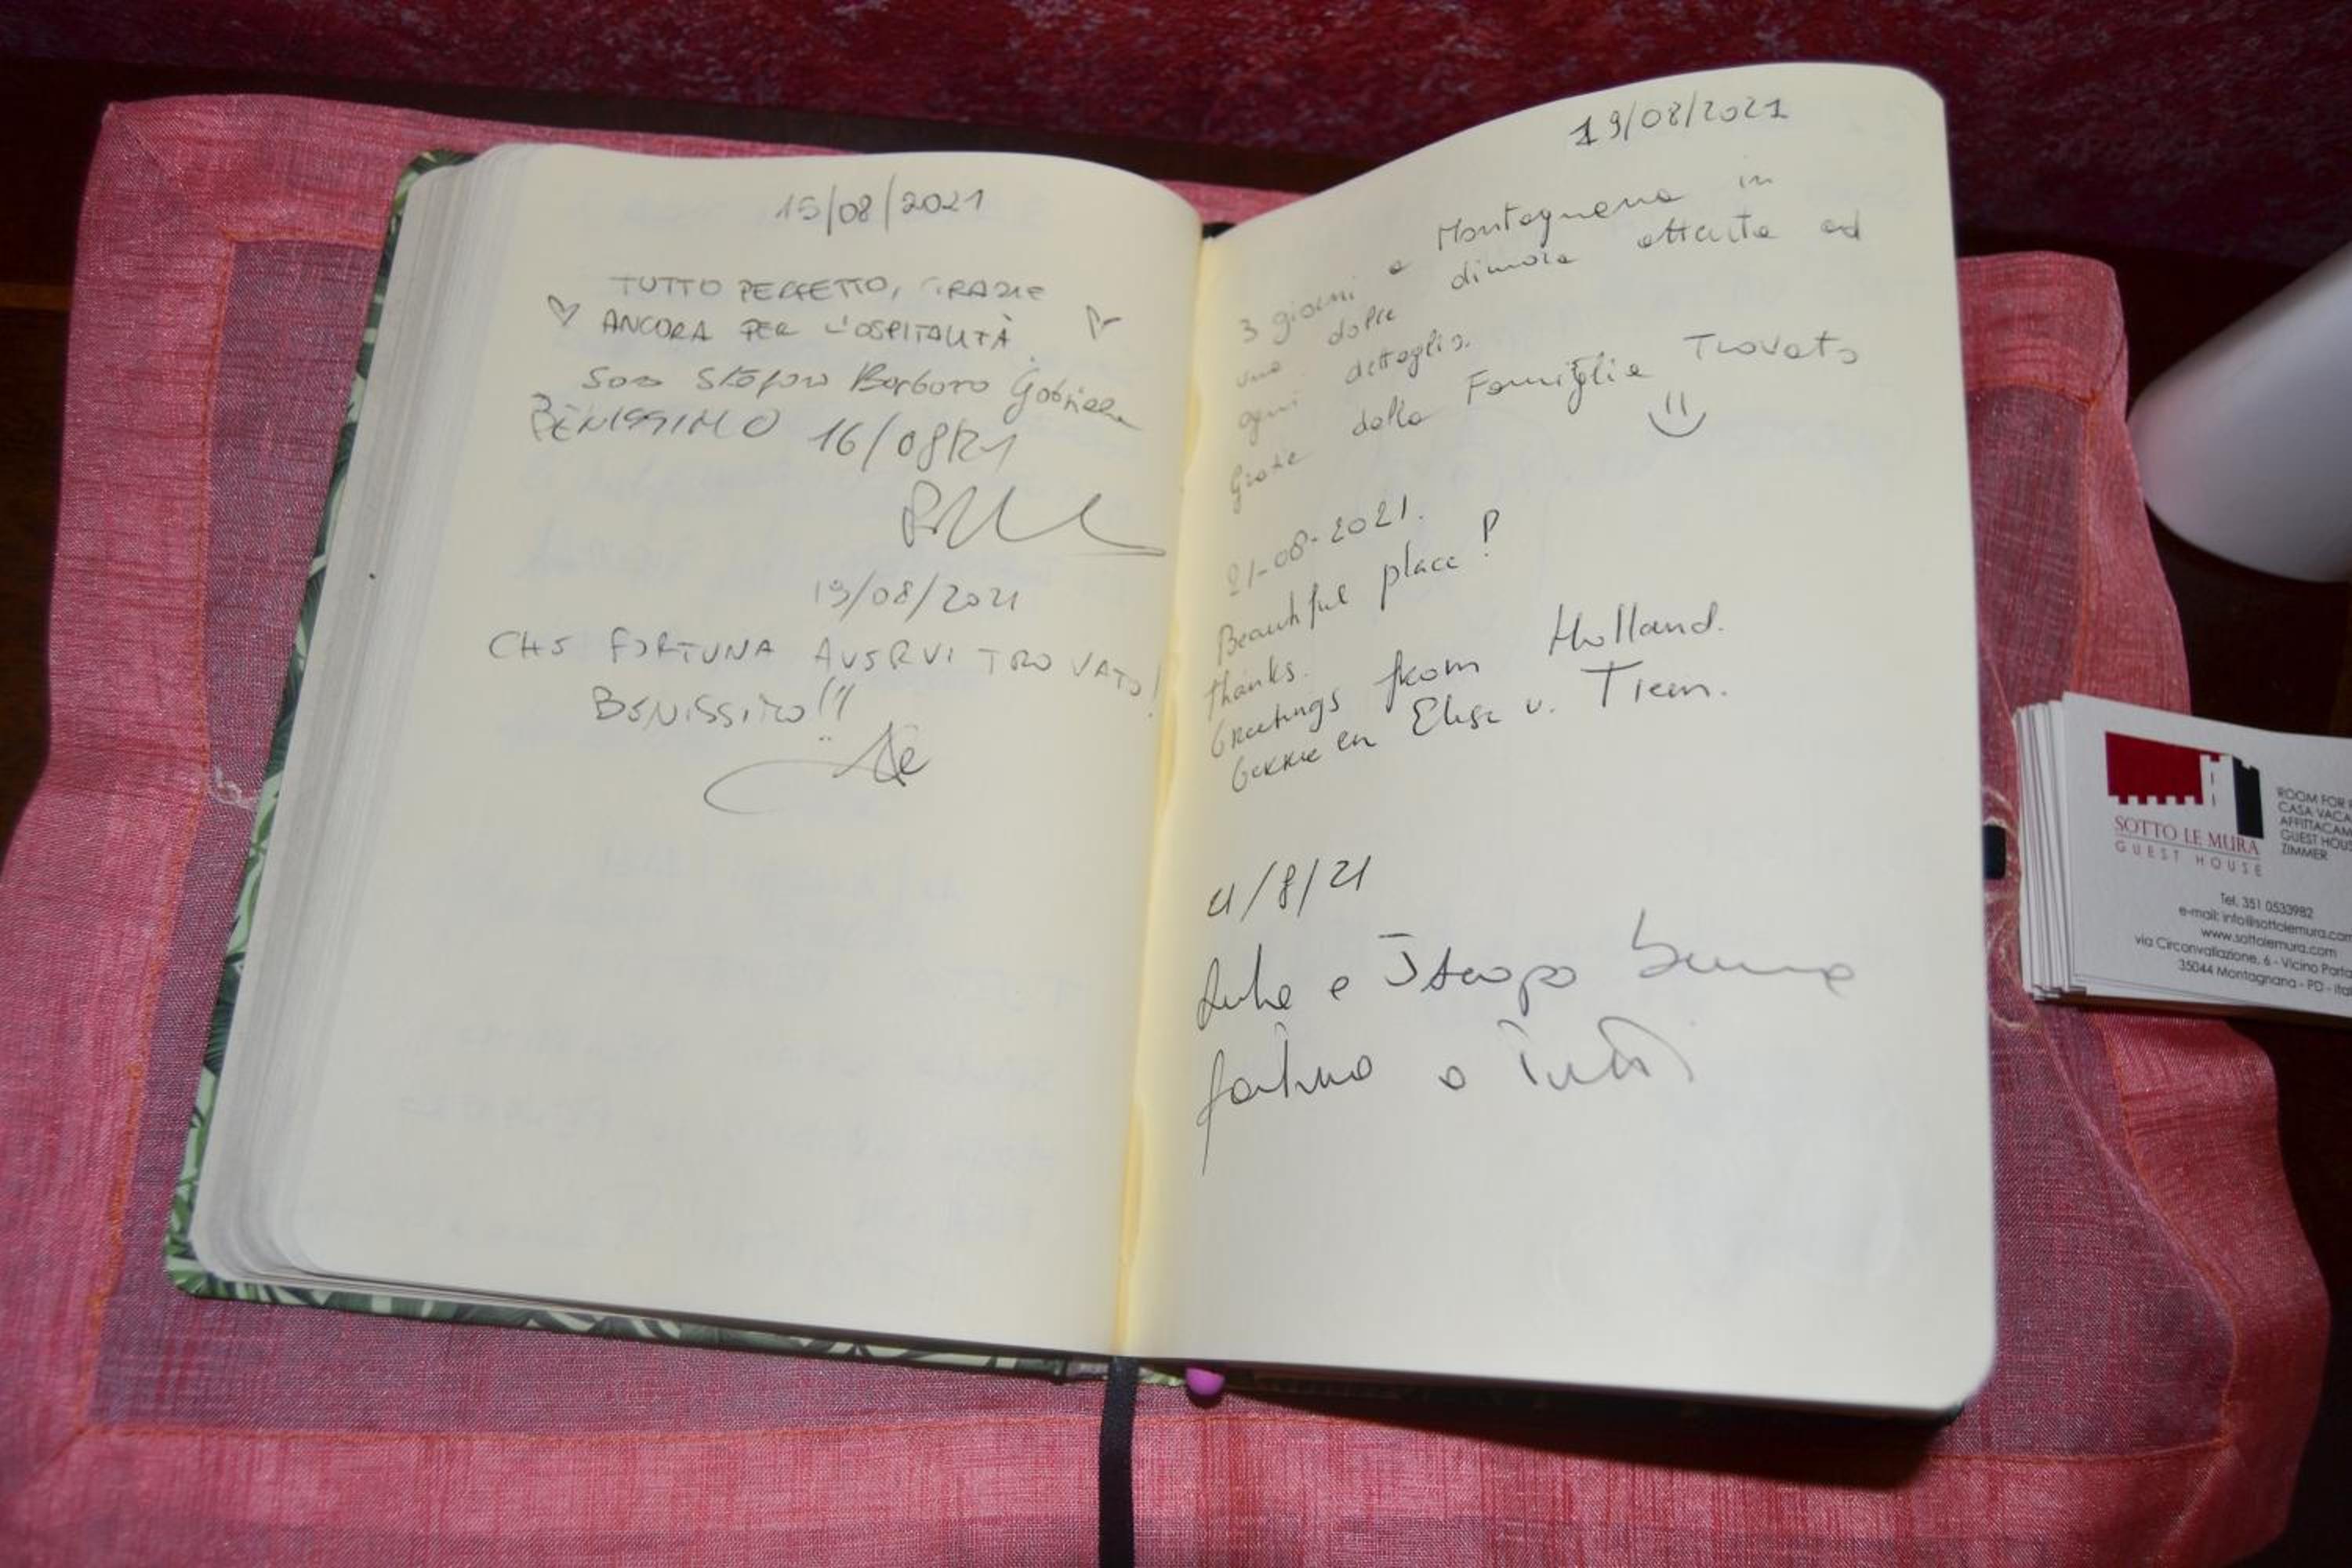 15/08/2021
TUTTO PERFETTO, GRAZIE
ANCORA PER L'OSPITALITÀ
Barbara Gabriella
BENISSIMO 16/08/21
19/08/2021
CHE FORTUNA AVERVI TROVATO!
BENISSIMO!!
19/08/2021
3 giorni a Montagnana in
una dolce dimora attenta ad
ogni dettaglio.
Grazie dalla Famiglia Trovato
21-08-2021.
Beautiful place!
thanks.
Greetings from Holland.
Gerrie en Elise v. Tien.
21/8/21
e buona
fortuna a Tutti
SOTTO LE MURA
GUEST HOUSE
ROOM FOR
CASA VACA
AFFITTACAM
GUEST HOUS
ZIMMER
Tel. 351 0533982
e-mail: info@sottolemura.com
www.sottolemura.com
via Circonvallazione, 6 - Vicino Porta
35044 Montagnana - PD - Ital